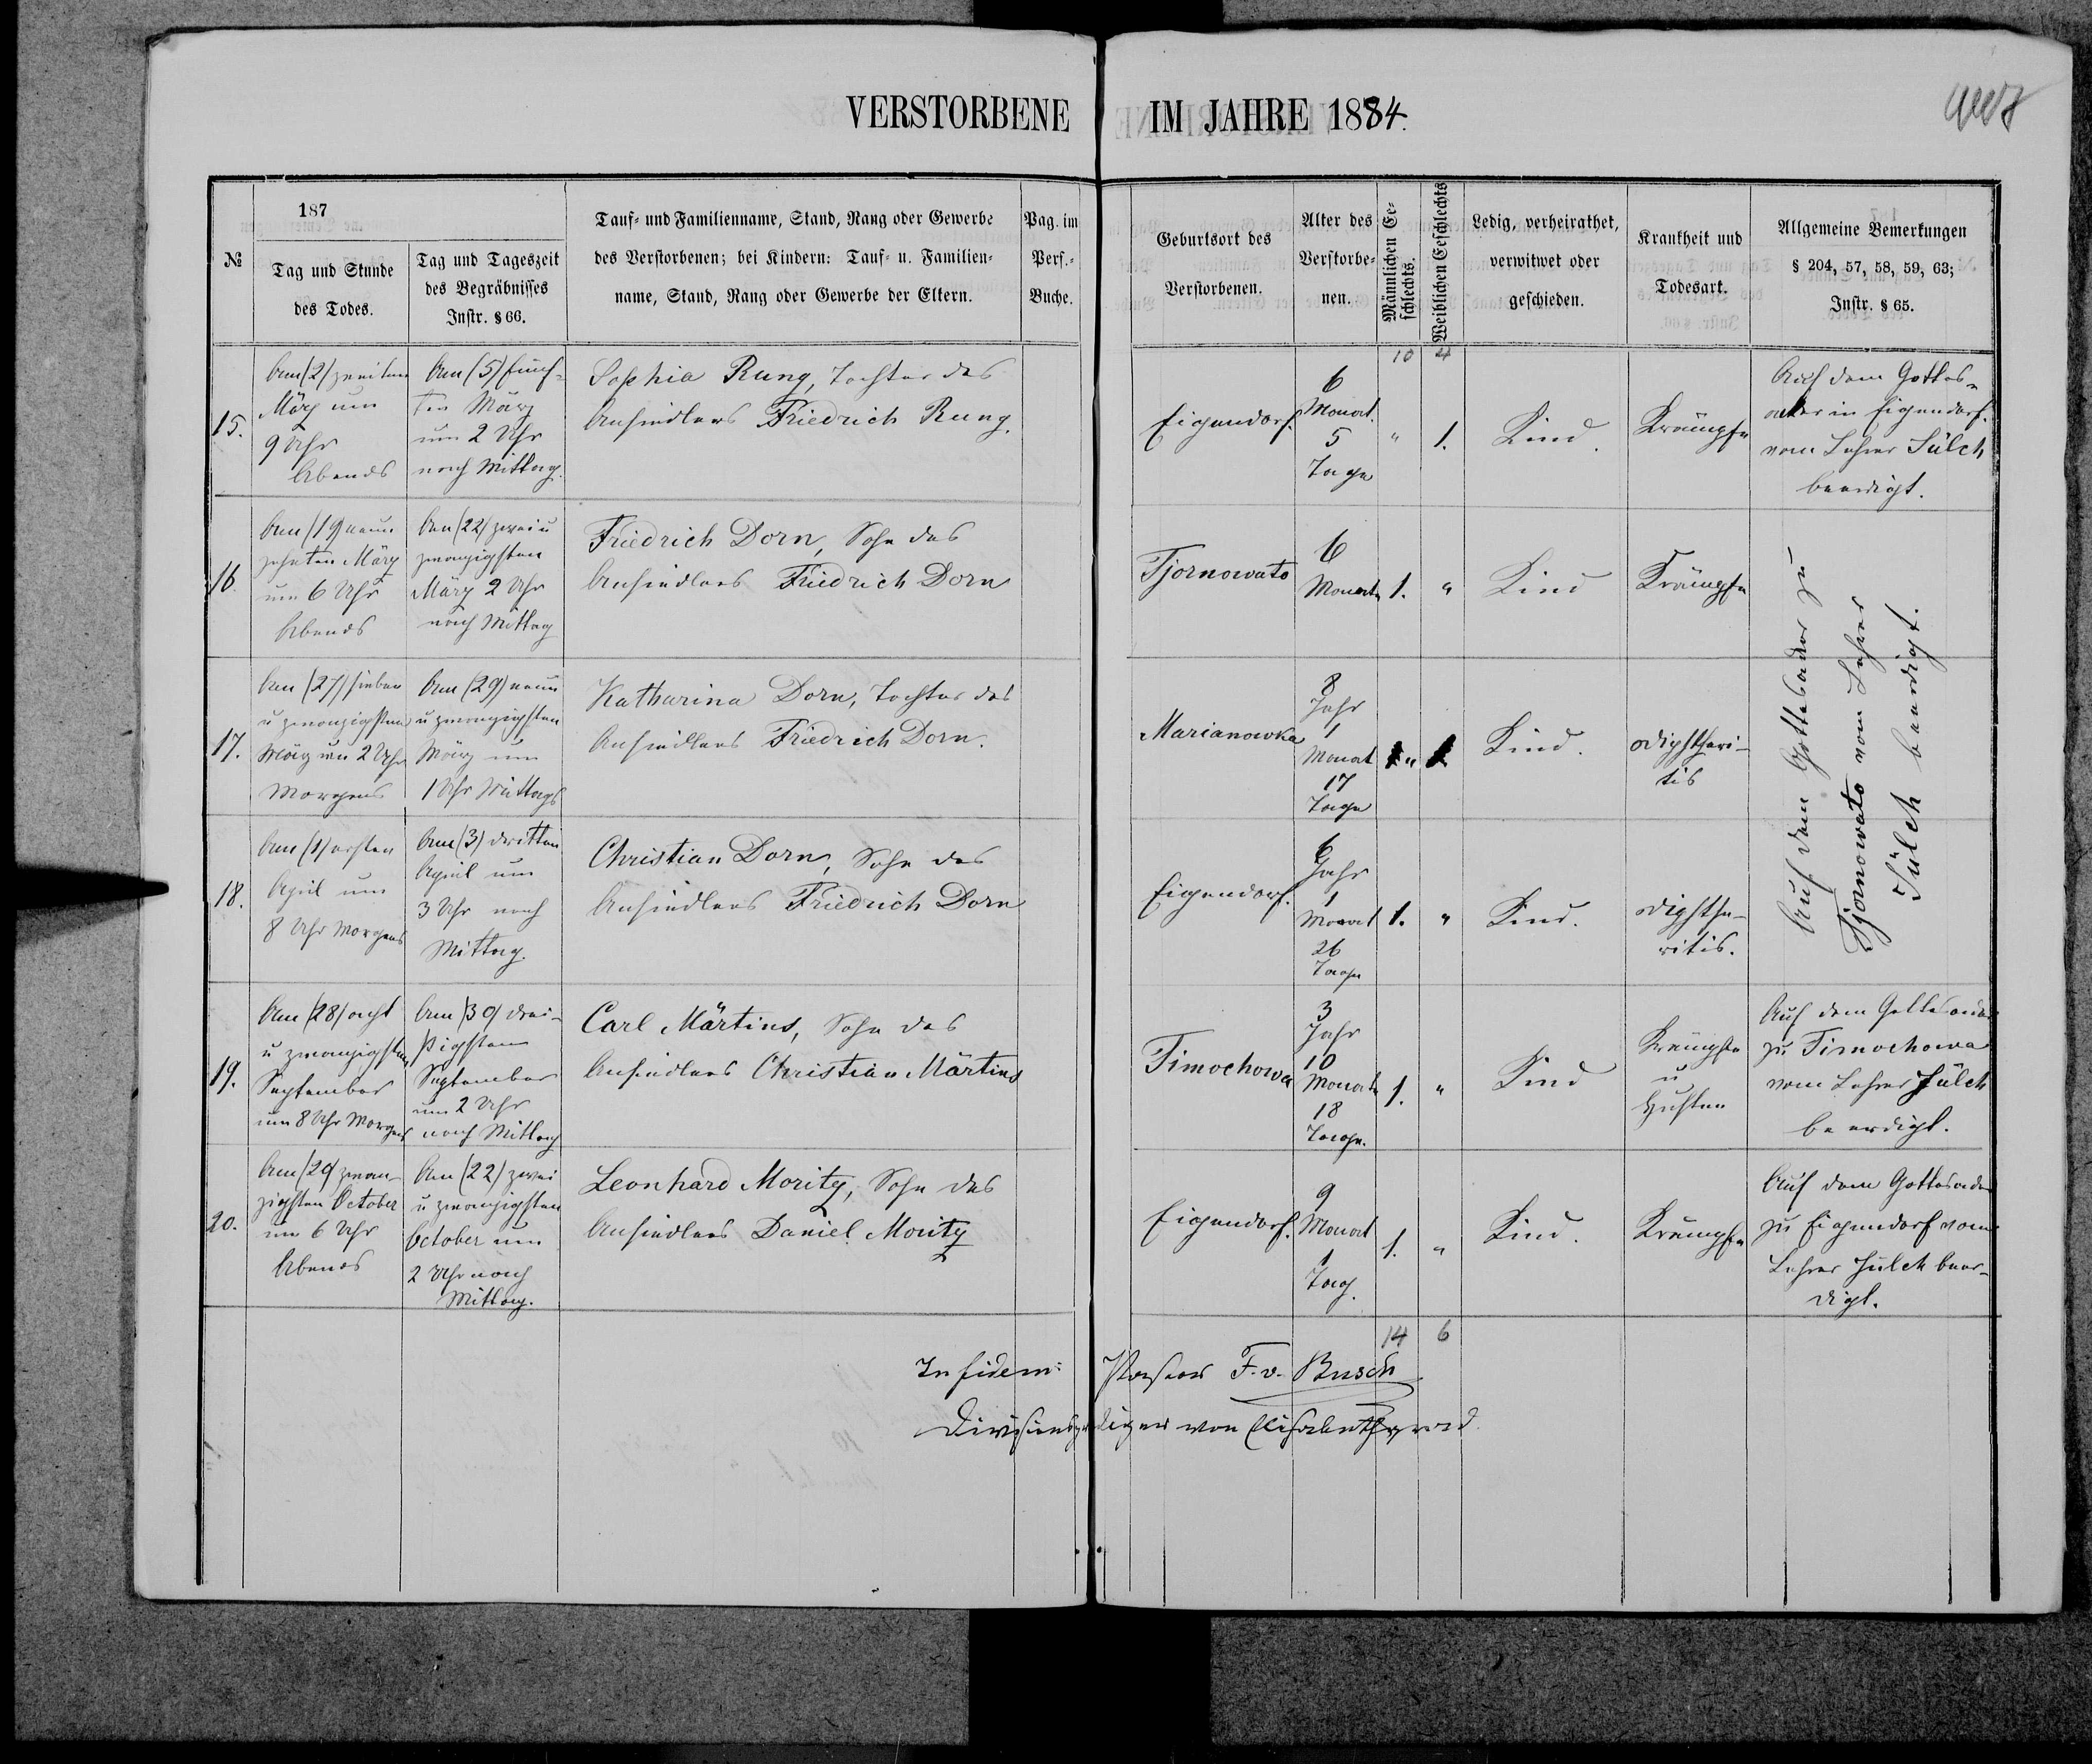 VERSTORBENE IM JAHRE 1884.
№
187
Tag und Stunde
des Todes.
Tag und Tageszeit
des Begräbnisses
Instr. § 66.
Tauf- und Familienname, Stand, Rang oder Gewerbe
des Verstorbenen; bei Kindern: Tauf- u. Familien-
name, Stand, Rang oder Gewerbe der Eltern.
Pag. im
Pers.-
Buche.
Geburtsort des
Verstorbenen.
Alter des
Verstorbe-
nen.
Männlichen Ge-
schlechts.
Weiblichen Geschlechts
Ledig, verheirathet,
verwitwet oder
geschieden.
Krankheit und
Todesart.
Allgemeine Bemerkungen
§ 204, 57, 58, 59, 63;
Instr. § 65.
10 4
15.
Am (2) zweiten
März um
9 Uhr
Abends
Am (5) fünf-
ten März
um 2 Uhr
nach Mittag.
Sophia Rung, Tochter des
Ansiedlers Friedrich Rung.
Eigendorf.
6
Monat
5
Tage
" 1.
Kind.
Krämpfe
Auf dem Gottes-
acker in Eigendorf.
vom Lehrer Jülch
beerdigt.
16.
Am (19) neun
zehnten März
um 6 Uhr
Abends
Am (22) zwei u
zwanzigsten
März 2 Uhr
nach Mittag
Friedrich Dorn, Sohn des
Ansiedlers Friedrich Dorn
Tjornowato
6
Monate
1. "
Kind
Krämpfe
Auf dem Gottesacker zu
Tjornowato vom Lehrer
Jülch beerdigt.
17.
Am (27) sieben
u zwanzigsten
März um 2 Uhr
Morgens
Am (29) neun
u zwanzigsten
März um
1 Uhr Mittags
Katharina Dorn, Tochter des
Ansiedlers Friedrich Dorn.
Marianowka
8
Jahr
1
Monat
17
Tage
" 1
Kind.
Diphtheri-
tis
18.
Am (1) ersten
April um
8 Uhr Morgens
Am (3) dritten
April um
3 Uhr nach
Mittag.
Christian Dorn, Sohn des
Ansiedlers Friedrich Dorn
Eigendorf.
6
Jahr
1
Monat
26
Tage
1. "
Kind.
Diphthe-
ritis.
19.
Am (28) acht
u zwanzigsten
September
um 8 Uhr Morgens
Am (30) drei-
ßigsten
September
um 2 Uhr
nach Mittag
Carl Märtins, Sohn des
Ansiedlers Christian Märtins
Timochowa
3
Jahr
10
Monate
18
Tage.
1. "
Kind
Krämpfe
u
Husten
Auf dem Gottesacker
zu Timochowa
vom Lehrer Jülch
beerdigt.
20.
Am (20) zwan-
zigsten October
um 6 Uhr
Abends
Am (22) zwei
u zwanzigsten
October um
2 Uhr nach
Mittag.
Leonhard Moritz, Sohn des
Ansiedlers Daniel Moritz
Eigendorf.
9
Monat
1
Tag.
1. "
Kind.
Krämpfe
Auf dem Gottesacker
zu Eigendorf vom
Lehrer Jülch beer-
digt.
14 6
In fidem: Pastor F. v. Busch
Divisionsprediger von Elisabethgrad